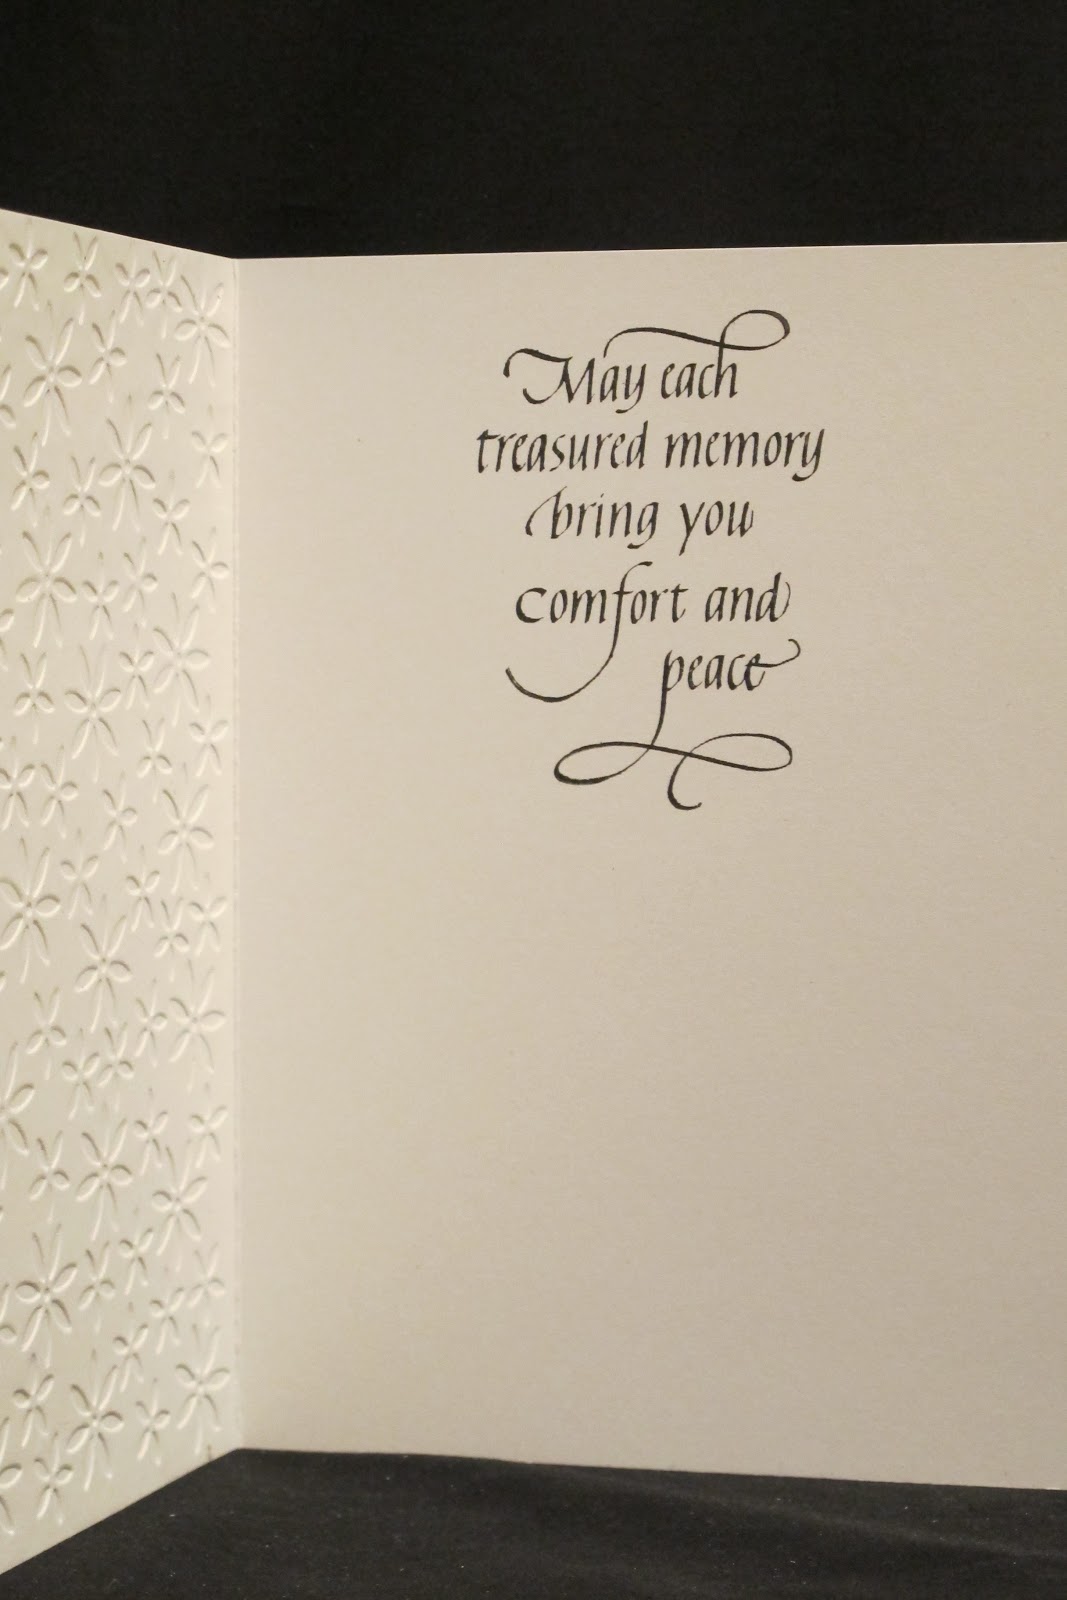 May each
treasured memory
bring you
comfort and
peace